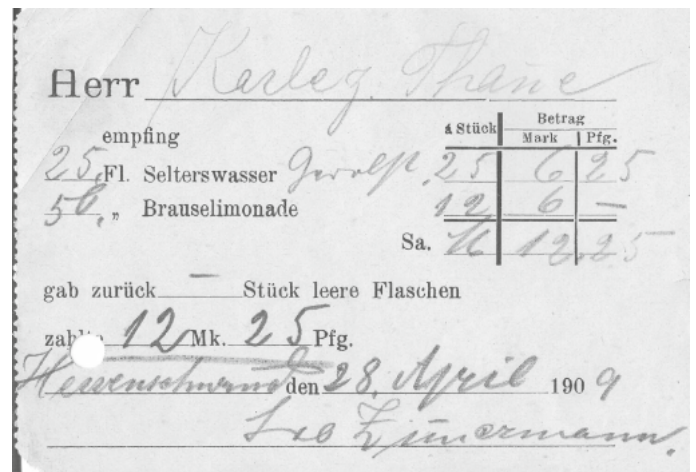 Herr Karl eg. Thane
empfing
á Stück Betrag
Mark Pfg.
25 Fl. Selterswasser Gerolst. 25 6 25
50 „ Brauselimonade 12 6 —
Sa. M 12,25
gab zurück — Stück leere Flaschen
zahlte 12 Mk. 25 Pfg.
den 28. April 1909
Leo Zimmermann.